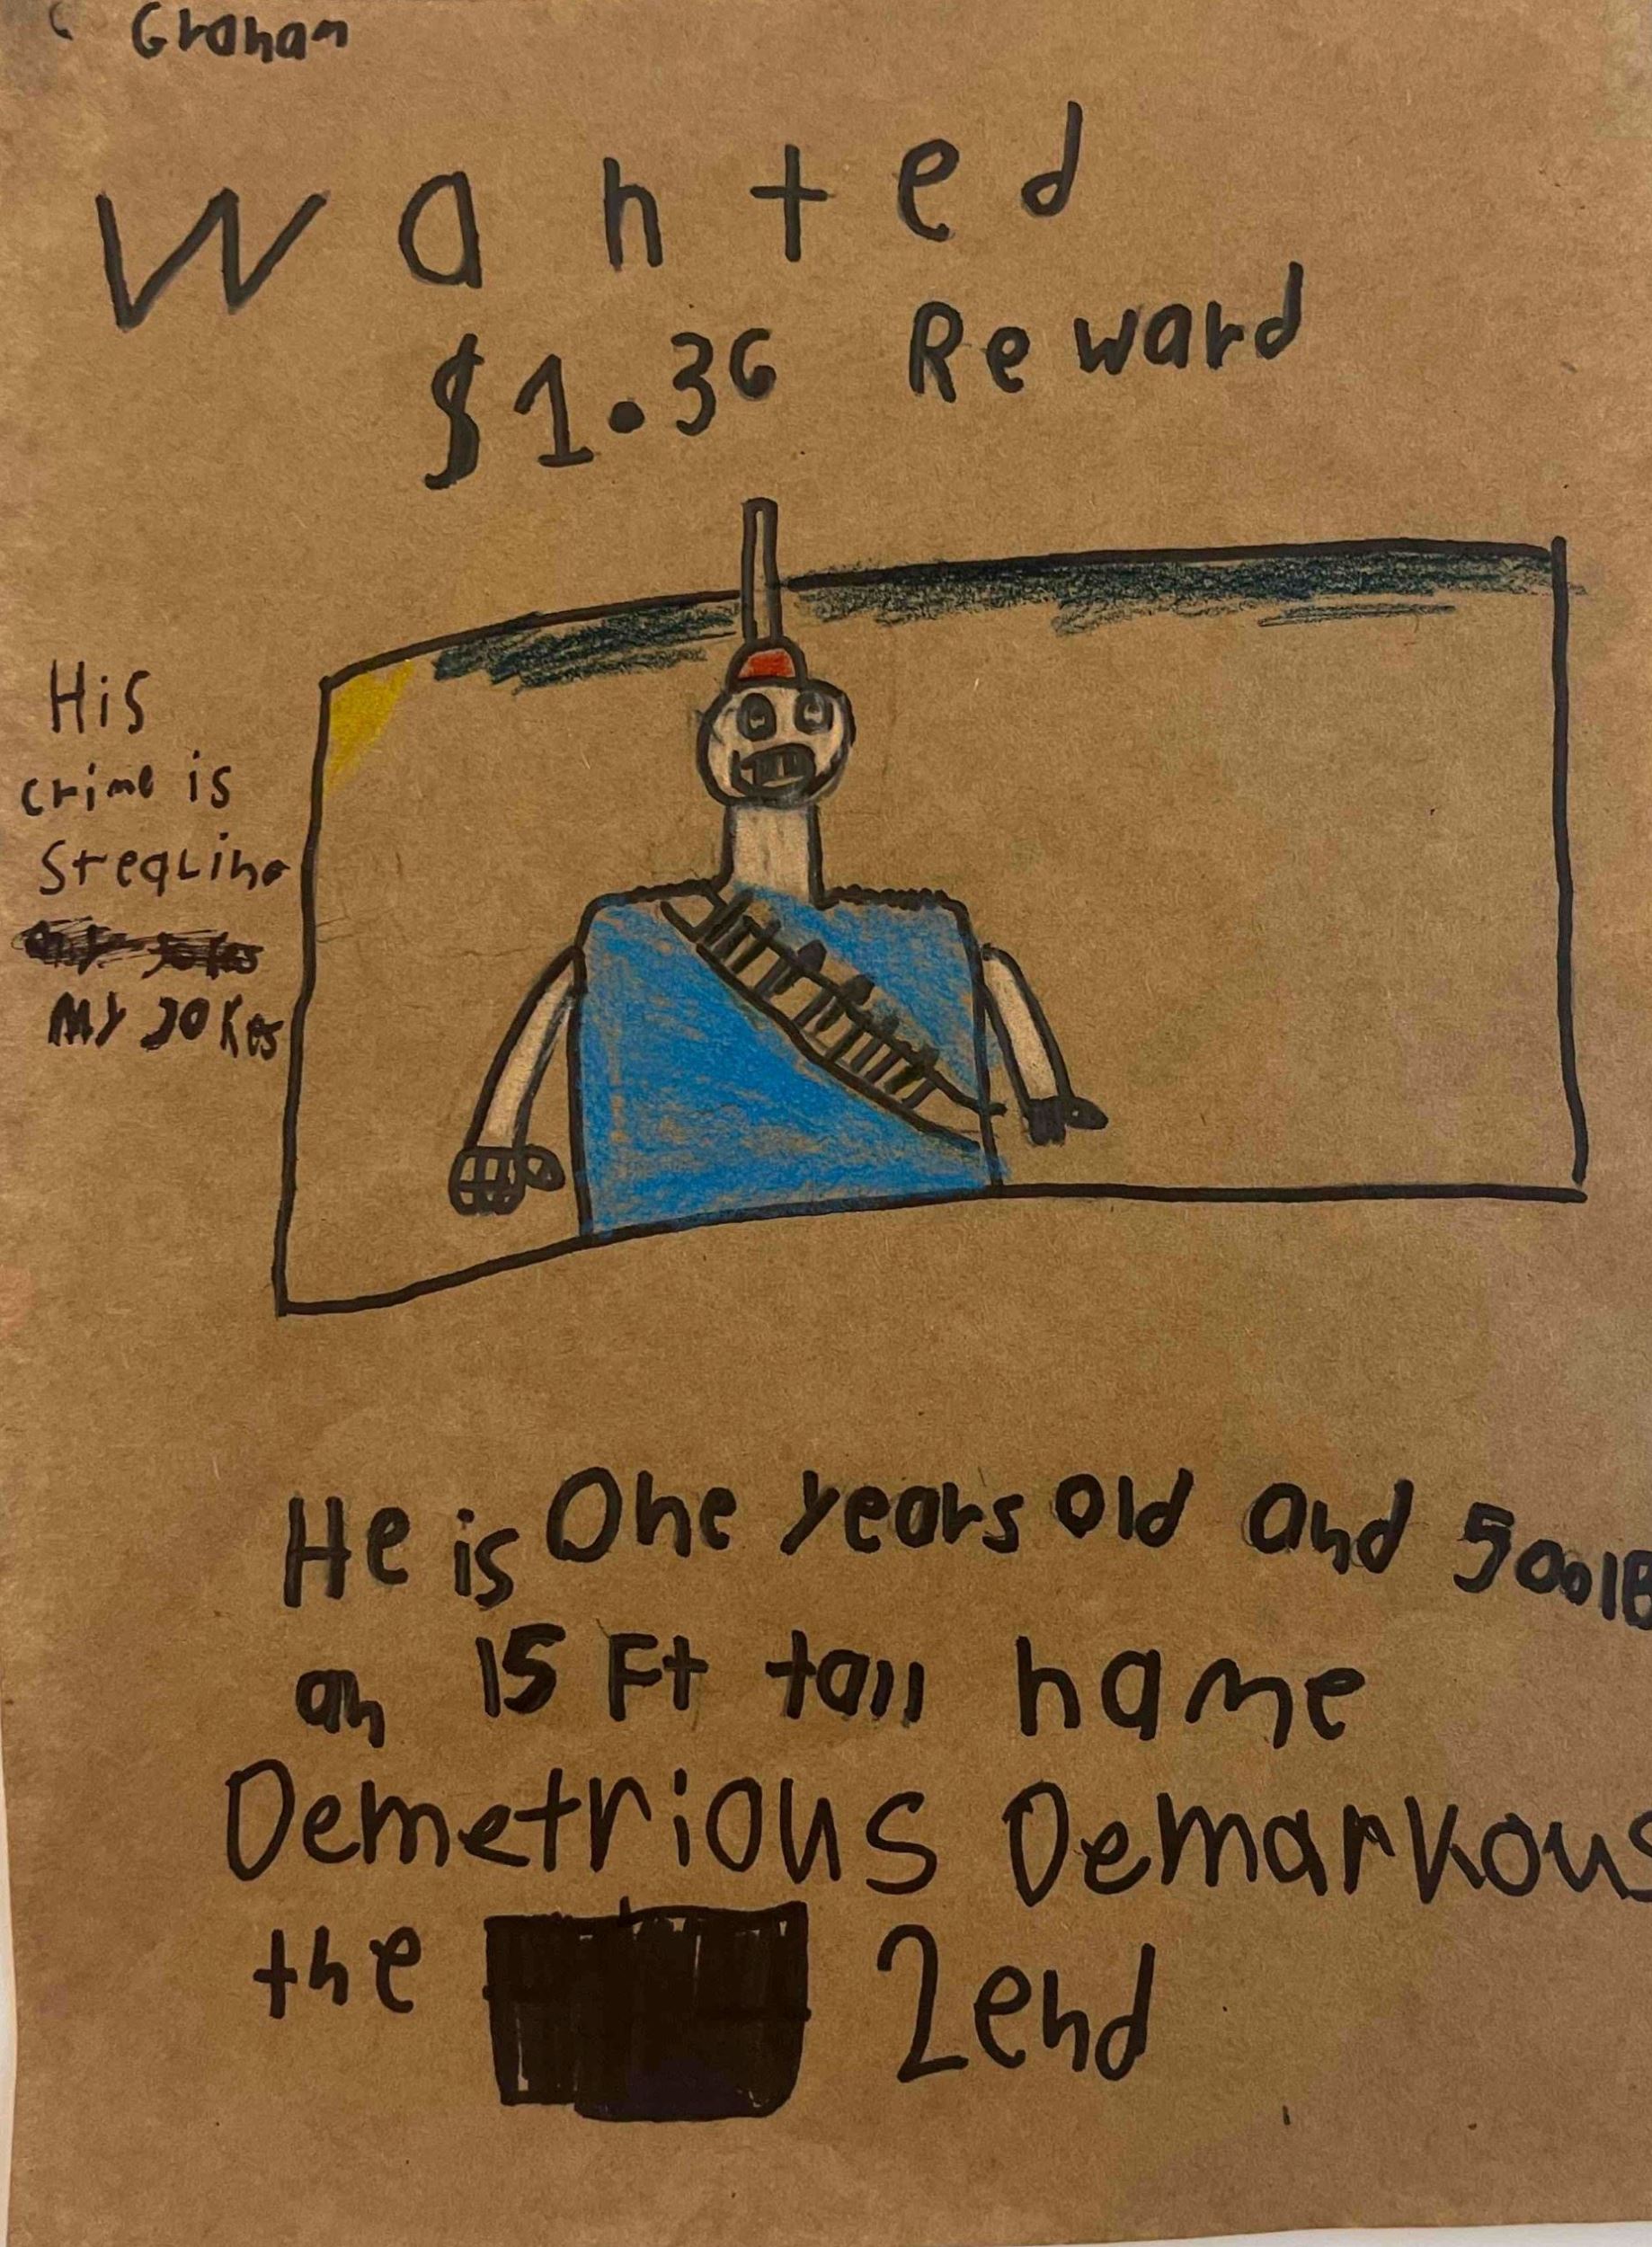 Graham
Wanted
$1.36 Reward
His
crime is
Steqling
My Jokes
He is One years old and 500lB
an 15 Ft tall name
Demetrious Demarkous
the 2end